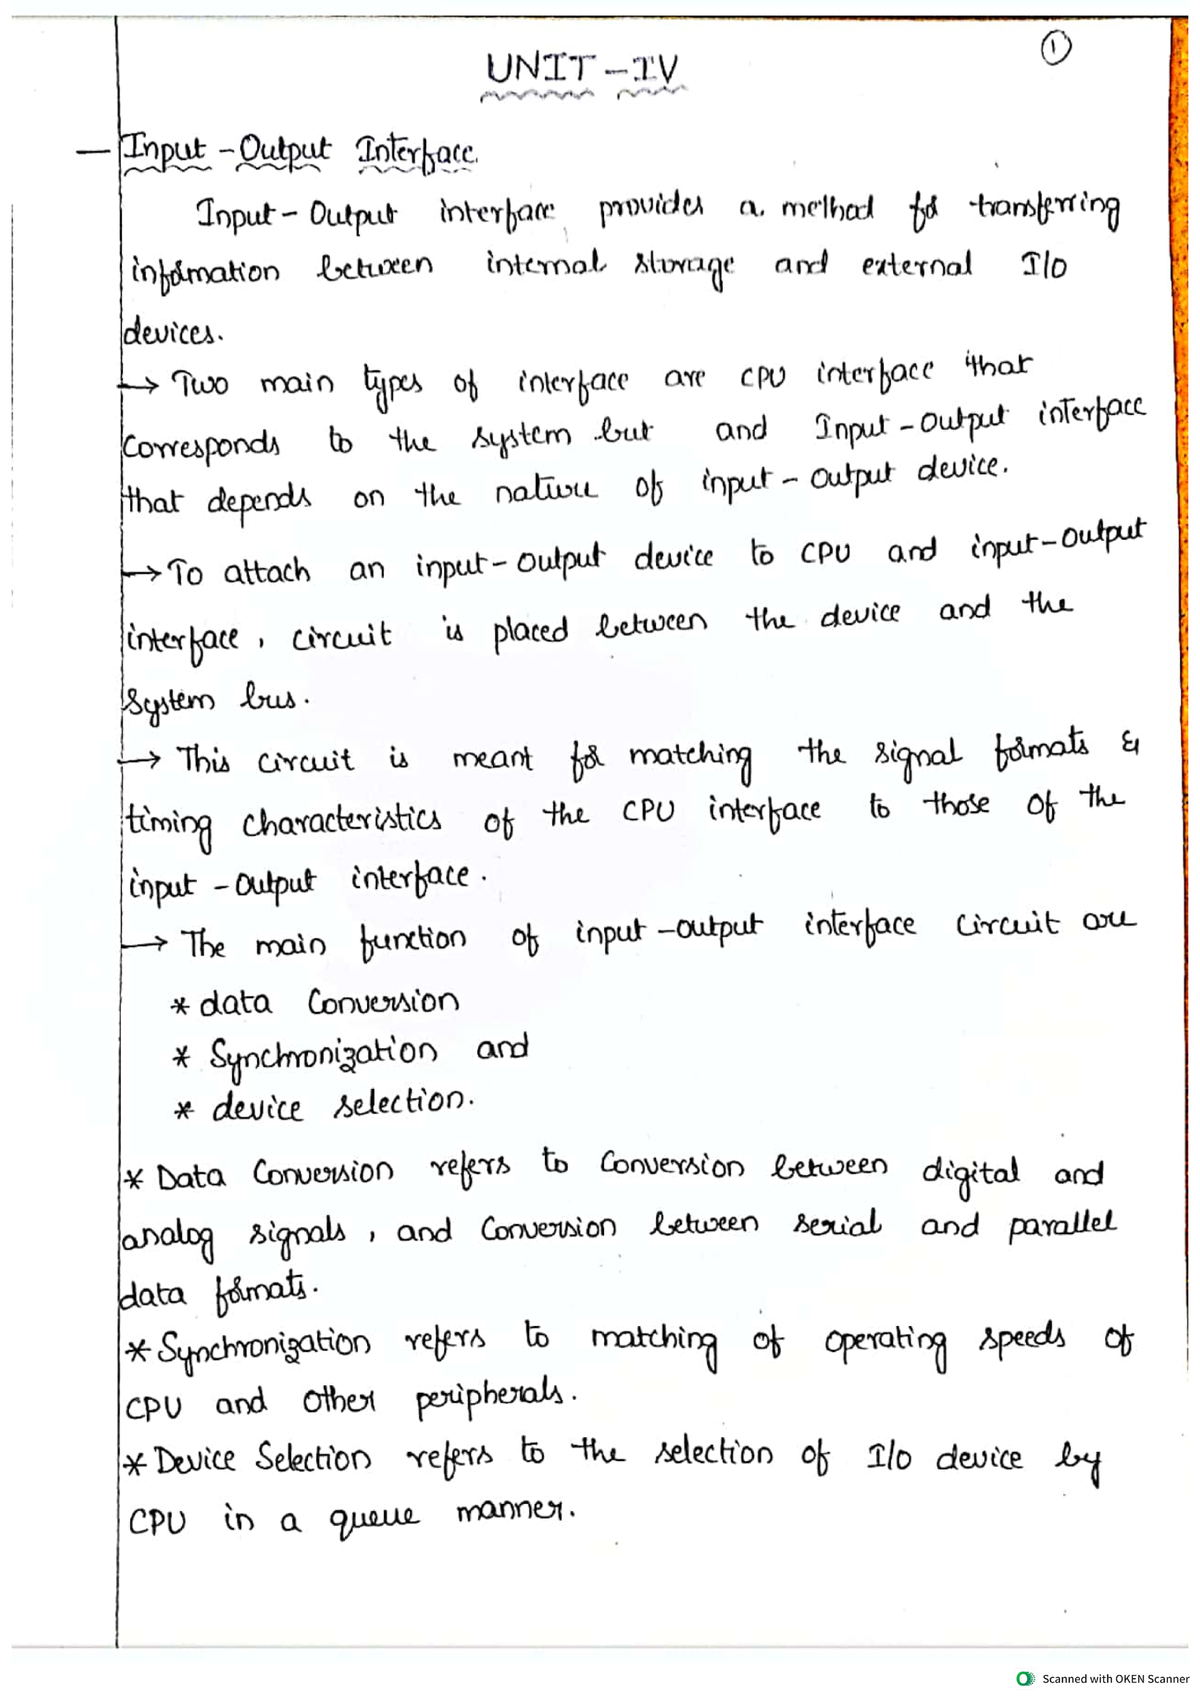 1
UNIT - IV
— Input - Output Interface.
Input - Output interface provides a method for transferring
information between internal storage and external I/O
devices.
→ Two main types of interface are CPU interface that
corresponds to the system but and Input - Output interface
that depends on the nature of input - output device.
→ To attach an input - output device to CPU and input - output
interface, circuit is placed between the device and the
System bus.
→ This circuit is meant for matching the signal formats &
timing characteristics of the CPU interface to those of the
input - output interface.
→ The main function of input - output interface circuit are
* data Conversion
* Synchronization and
* device selection.
* Data Conversion refers to conversion between digital and
analog signals, and conversion between serial and parallel
data formats.
* Synchronization refers to matching of operating speeds of
CPU and other peripherals.
* Device Selection refers to the selection of I/O device by
CPU in a queue manner.
Scanned with OKEN Scanner